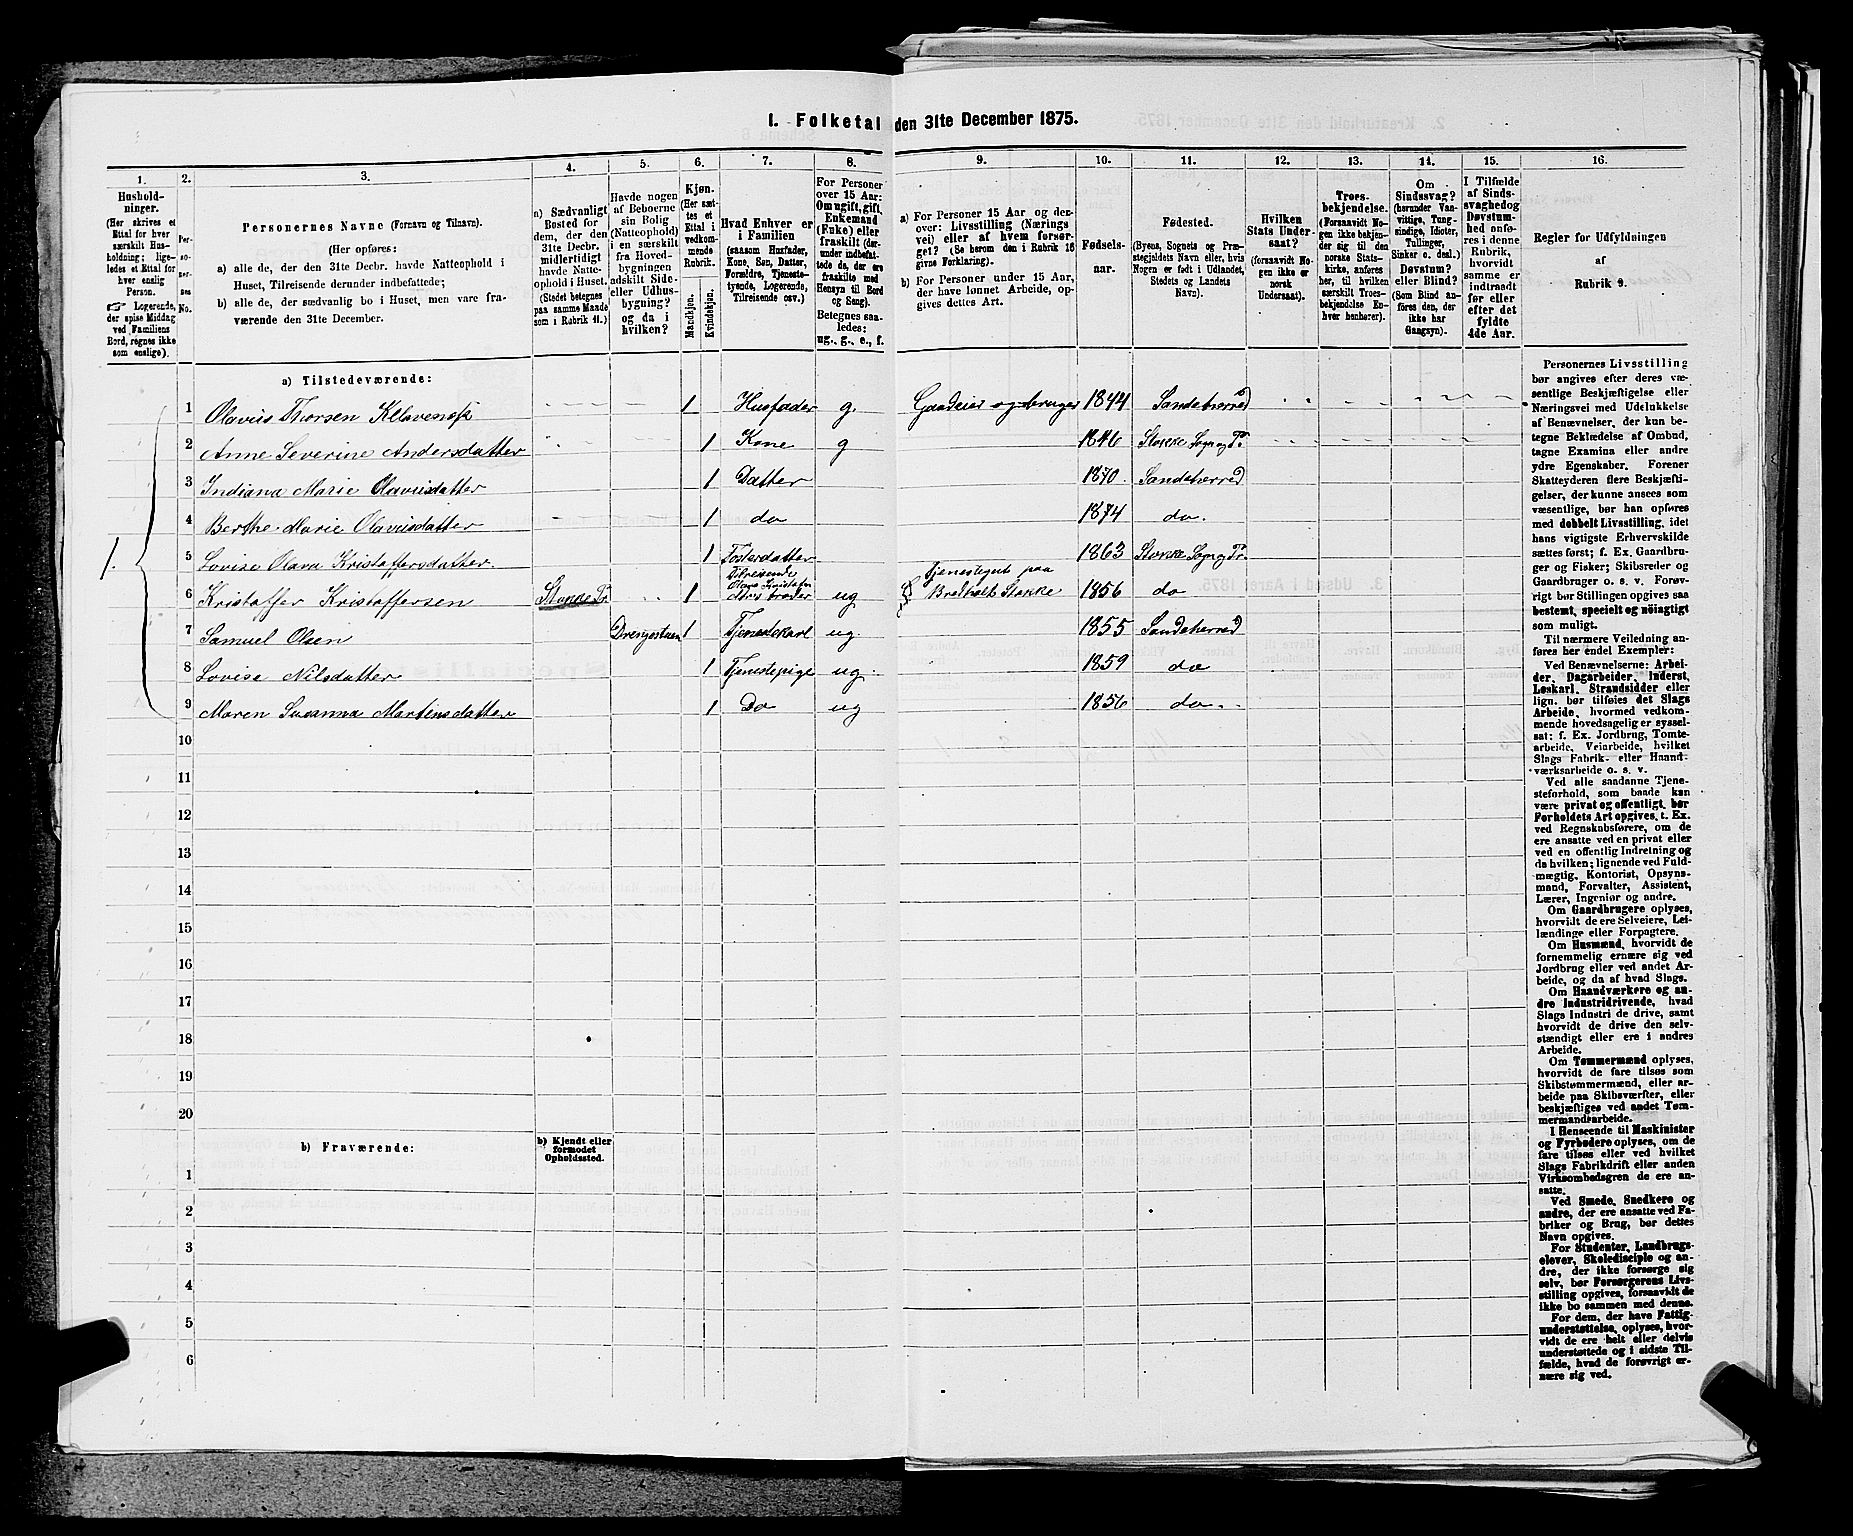 1. Folketal den 31te December 1875.
1.
Hushold-
ninger.
(Her skrives et
Ettal for hver
særskilt Hus-
holdning; lige-
ledes et Ettal for
hver enslig
Person.
☞ Logerende,
der spise Middag
ved Familiens
Bord, regnes ikke
som enslige).
2.
Per-
so-
ner-
nes
No.
3.
Personernes Navne (Fornavn og Tilnavn).
(Her opføres:
a) alle de, der den 31te Decbr. havde Natteophold i
Huset, Tilreisende derunder indbefattede;
b) alle de, der sædvanlig bo i Huset, men vare fra-
værende den 31te December.
4.
a) Sædvanligt
Bosted for
dem, der den
31te Decbr.
midlertidigt
havde Natte-
ophold i Huset.
(Stedet betegnes
paa samme Maade
som i Rubrik 11.)
5.
Havde nogen
af Beboerne
sin Bolig
(Natteophold)
i en særskilt
fra Hoved-
bygningen
adskilt Side-
eller Udhus-
bygning?
og da i
hvilken?
6.
Kjøn.
(Her sæt-
tes et
Ettal i
vedkom-
mende
Rubrik.
Mandkjøn.
Kvindekjøn.
7.
Hvad Enhver er
i Familien
(saasom Husfader,
Kone, Søn, Datter,
Forældre, Tjeneste-
tyende, Logerende,
Tilreisende osv.)
8.
For Personer
over 15 Aar:
Om ugift, gift,
Enkemand
(Enke) eller
fraskilt (der-
under indbefat-
tede de, der ere
fraskilte med
Hensyn til Bord
og Seng).
Betegnes saa-
ledes:
ug., g., e., f.
9.
a) For Personer 15 Aar og der-
over: Livsstilling (Nærings-
vei) eller af hvem forsør-
get? (Se herom den i Rubrik 16
givne Forklaring).
b) For Personer under 15 Aar,
der have lønnet Arbeide, op-
gives dettes Art.
10.
Fødsels-
aar.
11.
Fødested.
(Byens, Sognets og Præ-
stegjeldets Navn eller, hvis
Nogen er født i Udlandet,
Stedets og Landets
Navn).
12.
Hvilken
Stats Under-
saat?
(forsaavidt No-
gen ikke er
norsk
Undersaat).
13.
Troes-
bekjendelse.
(Forsaavidt No-
gen ikke bekjen-
der sig til den
norske Stats-
kirke, anføres
her, til hvilken
særskilt Troes-
bekjendelse En-
hver henhører).
14.
Om
Sindssvag?
(herunder Van-
vittige, Tung-
sindige, Idioter,
Tullinger,
Sinker o. desl.)
Døvstum?
eller Blind?
(Som Blind an-
føres den, der
ikke har
Gangsyn).
15.
I Tilfælde
af Sinds-
svaghed og
Døvstum-
hed anføres
i denne
Rubrik,
hvorvidt
samme er
indtraadt
før eller
efter det
fyldte
4de Aar.
16.
Regler for Udfyldningen
af
Rubrik 9.
a) Tilstedeværende:
1.
1 Olavus Thorsen Klavenæs 1 Husfader g. Gaardeier og bruger 1844 Sandeherred
2 Anne Severine Andersdatter 1 Kone g 1846 Stokke Sogn og Pr.
3 Indiana Marie Olavusdatter 1 Datter 1870. Sandeherred
4 Berthe Marie Olavusdatter 1 do 1874 do.
5 Lovise Olava Kristoffersdatter. 1 Fosterdatter 1863 Stokke Sogn og Pr.
6 Kristoffer Kristoffersen Stokke Pr. 1 Tilreisende Olava Kristoffer broder ug Tjenestegut paa Bredholt Stokke 1856 do
7 Samuel Olsen Drengestuen 1 Tjenestekarl ug. 1855 Sandeherred
8 Lovise Nilsdatter 1 Tjenestepige ug. 1859 do
9 Maren Susanna Martinsdatter 1 Do ug 1856 do.
10
11
12
13
14
15
16
17
18
19
20
b) Fraværende:
b) Kjendt eller
formodet
Opholdssted.
1
2
3
4
5
6
Personernes Livsstilling
bør angives efter deres væ-
sentlige Beskjæftigelse eller
Næringsvei med Udelukkelse
af Benævnelser, der kun be-
tegne Beklædelse af Ombud,
tagne Examina eller andre
ydre Egenskaber. Forener
Skatteyderen flere Beskjæfti-
gelser, der kunne ansees som
væsentlige, bør han opføres
med dobbelt Livsstilling, idet
hans vigtigste Erhvervskilde
sættes først; f. Ex. Gaardbru-
ger og Fisker; Skibsreder og
Gaardbruger o. s. v. Forøv-
rigt bør Stillingen opgives saa
bestemt, specielt og nöiagtigt
som muligt.
Til nærmere Veiledning an-
føres her endel Exempler:
Ved Benævnelserne: Arbei-
der, Dagarbeider, Inderst,
Løskarl, Strandsidder eller
lign. bør tilføies det Slags
Arbeide, hvormed vedkom-
mende hovedsagelig er syssel-
sat: f. Ex. Jordbrug, Tomte-
arbeide, Veiarbeide, hvilket
Slags Fabrik- eller Haand-
værksarbeide o. s. v.
Ved alle saadanne Tjene-
steforhold, som baade kan
være privat og offentligt, bør
Forholdets Art opgives, t. Ex.
ved Regnskabsførere, om de
ere ansatte ved en privat eller
ved en offentlig Indretning og
da hvilken; lignende ved Fuld-
mægtig, Kontorist, Opsyns-
mand, Forvalter, Assistent,
Lærer, Ingeniør og andre.
Om Gaardbrugere oplyses,
hvorvidt de ere Selveiere, Lei-
lændinge eller Forpagtere.
Om Husmænd, hvorvidt de
fornemmelig ernære sig ved
Jordbrug eller ved andet Ar-
beide, og da af hvad Slags.
Om Haandværkere og an-
dre Industridrivende, hvad
Slags Industri de drive, samt
hvorvidt de drive den selv-
stændigt eller ere i andres
Arbeide.
Om Tømmermænd oplyses,
hvorvidt de fare tilsøs som
Skibstømmermænd, eller ar-
beide paa Skibsværfter, eller
beskjæftiges ved andet Tøm-
mermandsarbeide.
I Henseende til Maskinister
og Fyrbødere oplyses, om de
fare tilsøs eller ved hvilket
Slags Fabrikdrift eller anden
Virksombedsgren de ere an-
satte.
Ved Smede, Snedkere og
andre, der ere ansatte ved Fa-
briker og Brug, bør dettes
Navn opgives.
For Studenter, Landbrugs-
elever, Skoledisciple og an-
dre, der ikke forsørge sig
selv, bør Forsørgerens Livs-
stilling opgives, forsaavidt de
ikke bo sammen med denne.
For dem, der have Fattig-
understøttelse, oplyses, hvor-
vidt de ere helt eller delvis
understøttede og i sidste Til-
fælde, hvad de forøvrigt er-
nære sig ved.